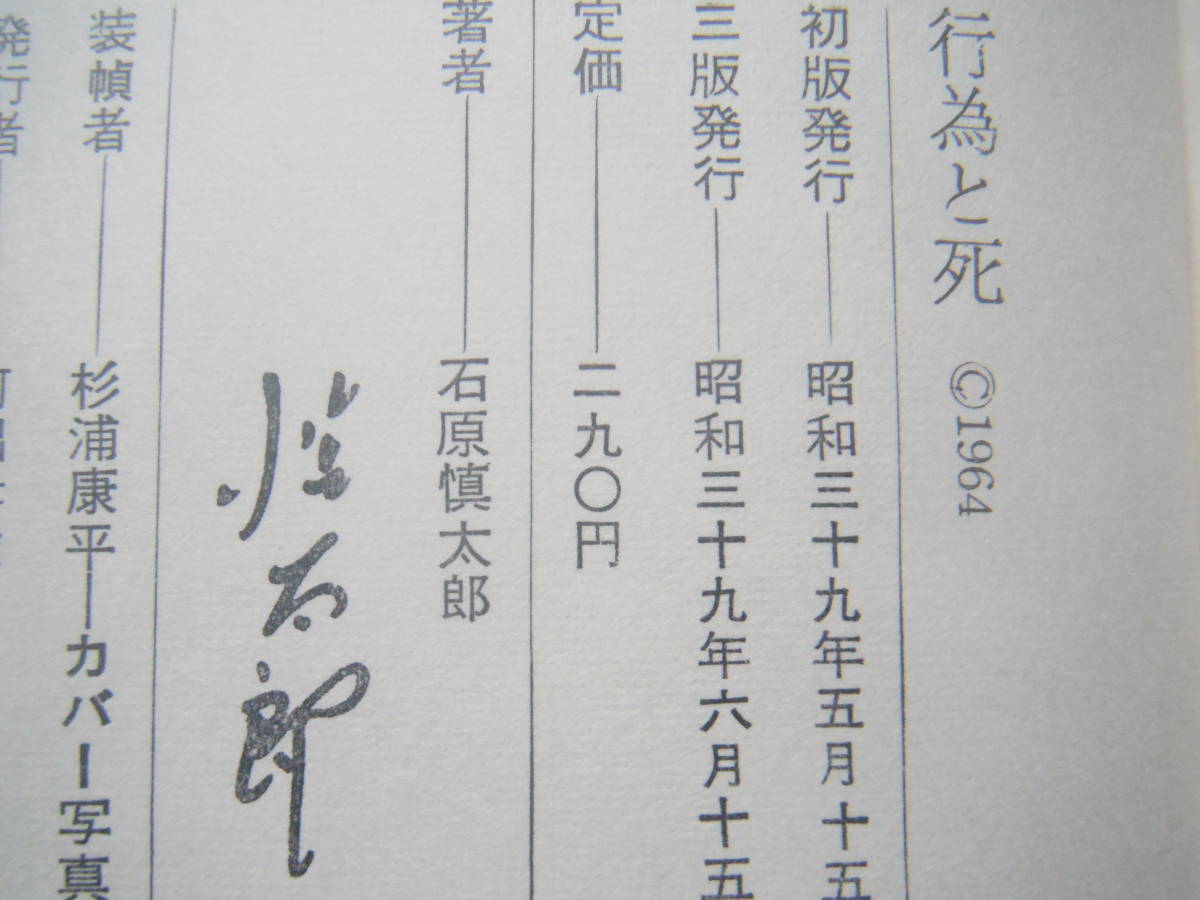 行為と死 ©1964
初版発行――昭和三十九年五月十五
三版発行――昭和三十九年六月十五
定価――二九〇円
著者――石原慎太郎
慎太郎
装幀者――杉浦康平―カバー写真
発行者―